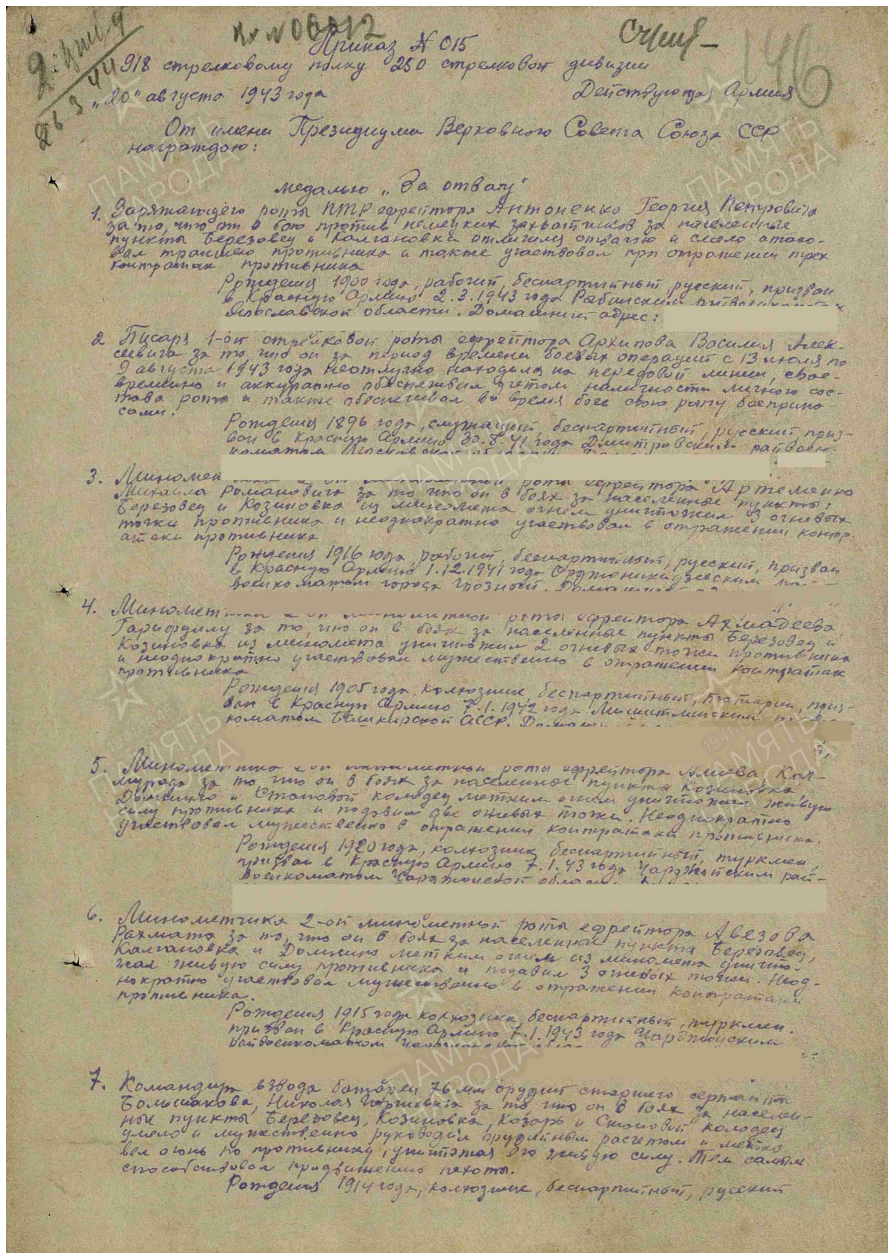 Приказ № 015
918 стрелковому полку 250 стрелковой дивизии
„20“ августа 1943 года Действующая Армия
От имени Президиума Верховного Совета Союза ССР
награждаю:
медалью „За отвагу“
1. Заряжающего роты ПТР ефрейтора Антоненко Георгия Петровича
за то, что он в бою против немецких захватчиков за населенные
пункты Березовец и Калгановка отличился отвагою и смело атако-
вал траншею противника и также участвовал при отражении трех
контратак противника
Рождения 1900 года, рабочий, беспартийный, русский, призван
в Красную Армию 2.3.1943 года
Ярославской области. Домашний адрес:
2 Писаря 1-ой стрелковой роты ефрейтора Архипова Василия Алек-
сеевича за то, что он за период времени боевых операций с 13 июля по
9 августа 1943 года неотлучно находился на передовой линии, свое-
временно и аккуратно обеспечивал учетом наличности личного сос-
тава роты и также обеспечивал во время боев свою роту боеприпа-
сами.
Рождения 1896 года, служащий, беспартийный, русский приз-
ван в Красную Армию 30.8.41 года Дмитровским райвоен
коматом Московской
3. Миномет роты ефрейтора Артеменко
Михаила Романовича за то что он в боях за населенные пункты:
Березовец и Козиновка из миномета огнем уничтожил 3 огневых
точки противника и неоднократно участвовал в отражении контр.
атаки противника
Рождения 1916 года рабочий, беспартийный, русский, призван
в Красную Армию 1.12.1941 года Орджоникидзевским
военкоматом города Грозный.
4. Миномет роты ефрейтора Ахмадеева
Гарифуллу за то, что он в боях за населенные пункты Березовец и
Козиновка из миномета уничтожил 2 огневых точки противника
и неоднократно участвовал мужественно в отражении контратак
противника
Рождения 1905 года, колхозник беспартийный, татарин, приз-
ван в Красную Армию 7.1.1942 года
коматом Башкирской АССР.
5. Минометчика роты ефрейтора Алиева
за то, что он в боях за населенные пункта Козиновка
и Становой колодец метким огнем уничтожил живую
силу противника и подавил две огневых точки. Неоднократно
участвовал мужественно в отражении контратаки противника.
Рождения 1920 года, колхозник, беспартийный, туркмен,
призван в Красную Армию 7.1.43 года Чарджойским рай-
военкоматом Чарджойской области
6. Минометчика 2-ой минометной роты ефрейтора Авезова
Рахмата за то, что он в боях за населенные пункта Березовец,
Калгановка и Должино метким огнем из миномета уничто-
жал живую силу противника и подавил 3 огневых точки. Неод-
нократно участвовал мужественно в отражении контратаки
противника.
Рождения 1915 года колхозник, беспартийный, туркмен.
призван в Красную Армию 7.1.1943 года Чарджойским
райвоенкоматом
7. Командира взвода батареи 76 мм орудий старшего сержанта
Большакова, Николая за то, что он в боях за населен-
ные пункты Березовец, Козиновка, Козарь и Становой колодец
умело и мужественно руководил орудийным расчетом и метко
вел огонь по противнику, уничтожая его живую силу. Тем самым
способствовал продвижению пехоты.
Рождения 1914 года, колхозник, беспартийный, русский